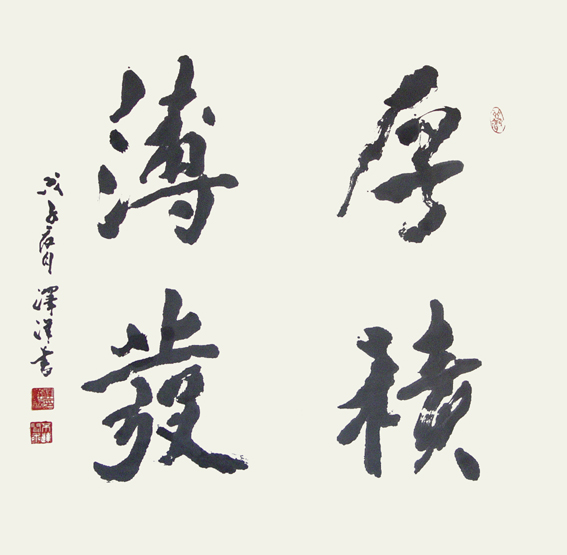 厚積
薄發
戊子夏月澤洋書